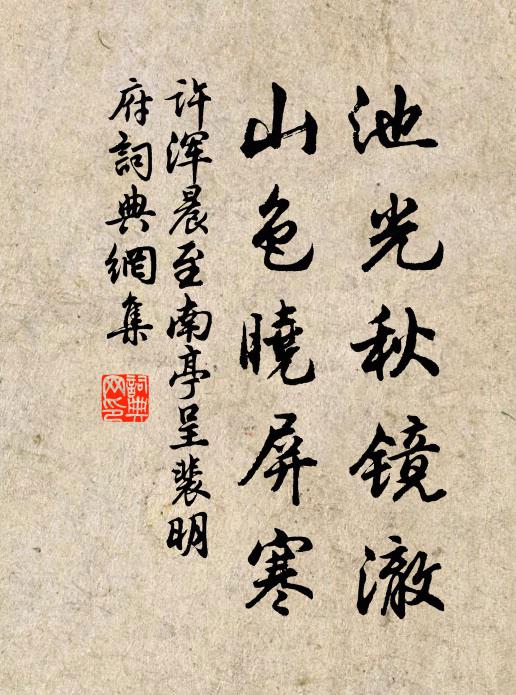 池光秋镜澈
山色曉屏寒
许浑晨至南亭呈裴明
府詞典網集
詞典
网印